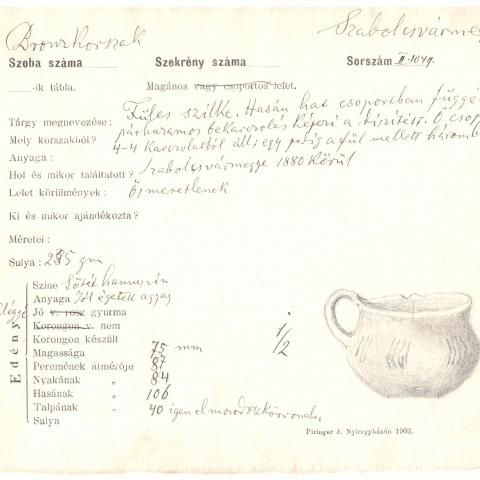 Bronzkorszak
Szabolcsvármeg
Szoba száma Szekrény száma Sorszám II.1049.
-ik tábla. Magános vagy csoportos lelet.
Tárgy megnevezése: Füles szilke. Hasán hat csoportban függé
párhuzamos bekarczolás képezi a díszítést. 5 csop
Mely korszakból? 4-4 karczolatból áll; egy pedig a fül mellett háromb
Anyaga:
Hol és mikor találtatott? Szabolcsvármegye 1880 körül
Lelet körülmények: Ismeretlenek
Ki és mikor ajándékozta?
Méretei:
Sulya: 285 gm
Edény
Szine Sötét hamuszín
Anyaga Jól égetett agyag
Jó v. rosz gyurma
Korongon v. nem
Korongon készült
Magassága 75 mm
1/2
Peremének átmérője 87
Nyakának „ 84
Hasának „ 106
Talpának „ 40 igen elmosódott körvonalu
Sulya
Piringer J. Nyiregyházán 1903.